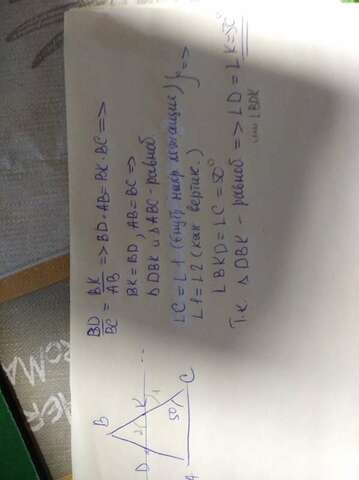 BD/BC = BK/AB => BD · AB = BK · BC =>
BK = BD, AB = BC =>
△DBK и △ABC - равноб
∠C = ∠1 (внутр накр лежащие) } =>
∠1 = ∠2 (как вертик.)
∠BKD = ∠C = 50°
Т.к. △DBK - равноб => ∠D = ∠K = 50°
∠BDK
B
D
2
K
1
50°
A
C